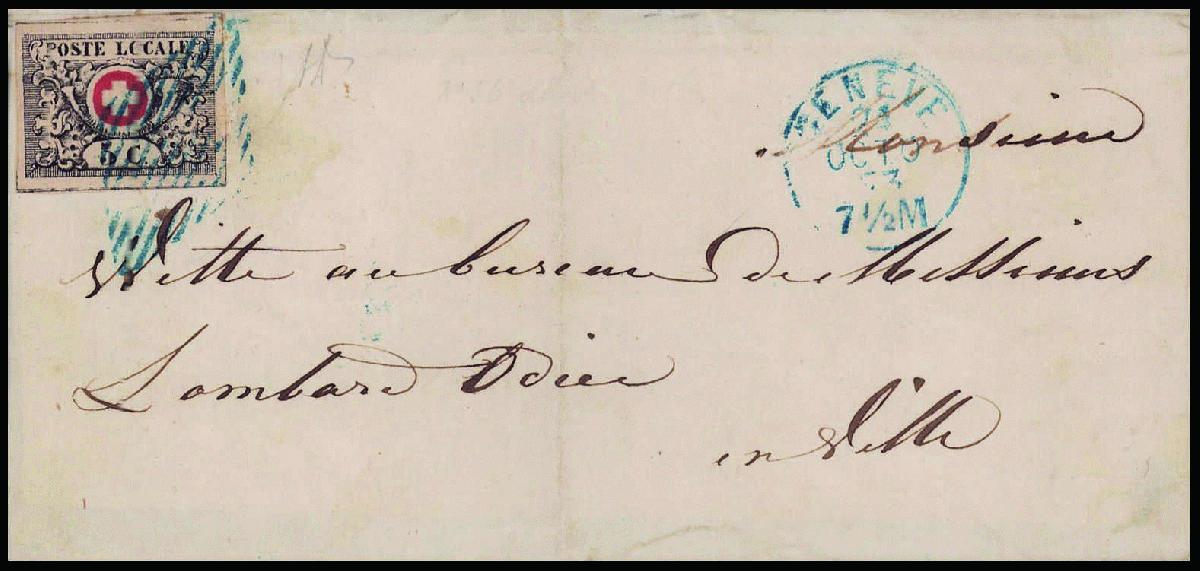 POSTE LOCALE
5 C.
GENEVE
OCTO
53
7 1/2 M
Monsieur
au bureau de Messieurs
Lombard Odier
en Ville